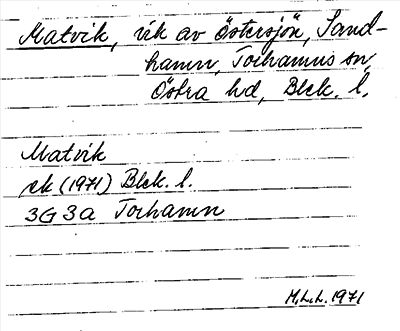 Matvik, vik av Östersjön, Sand-
hamn, Torhamns sn,
Östra hd, Blek. l.
Matvik
ek (1971) Blek. l.
3G 3a Torhamn
M.L.L. 1971